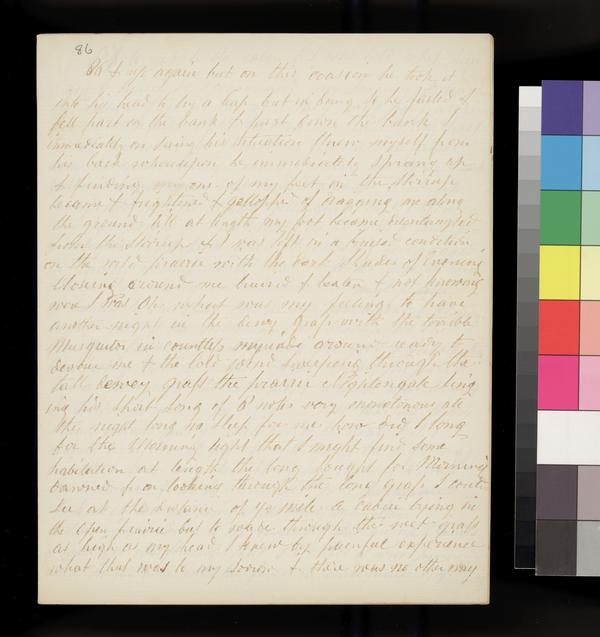 86
& up again but on this occasion he took it
into his head to try a leap but in doing so he failed &
fell part on the bank & part down the bank I
immediately on seeing his situation threw myself from
his back whereupon he immediately sprang up
& finding one of my feet in the stirrup
became frightened & galloped of dragging me along
the ground till at length my foot became disentangled
from the stirrup & I was left in a bruised condition
on the wild prairie with the dark shades of Evening
Closing around me bruised & beaten & not knowing
were I was Oh what was my feelings to have
another night in the dewy grass with the terrible
Musquitos in countless myriads around ready to
devour me & the cold wind sweeping through the
tall dewey grass the prairie Nightengale sing
ing his short song of 3 notes very monotonous all
the night long no sleep for me how did I long
for the Morning light that I might find some
habitation at length the long sought for Morning
dawned & on looking through the long grass I could
see at the distance of ½ mile a cabin lying in
the open prairie but to wade through the wet grass
as high as my head I knew by painful experience
what that was to my sorrow & there was no other way